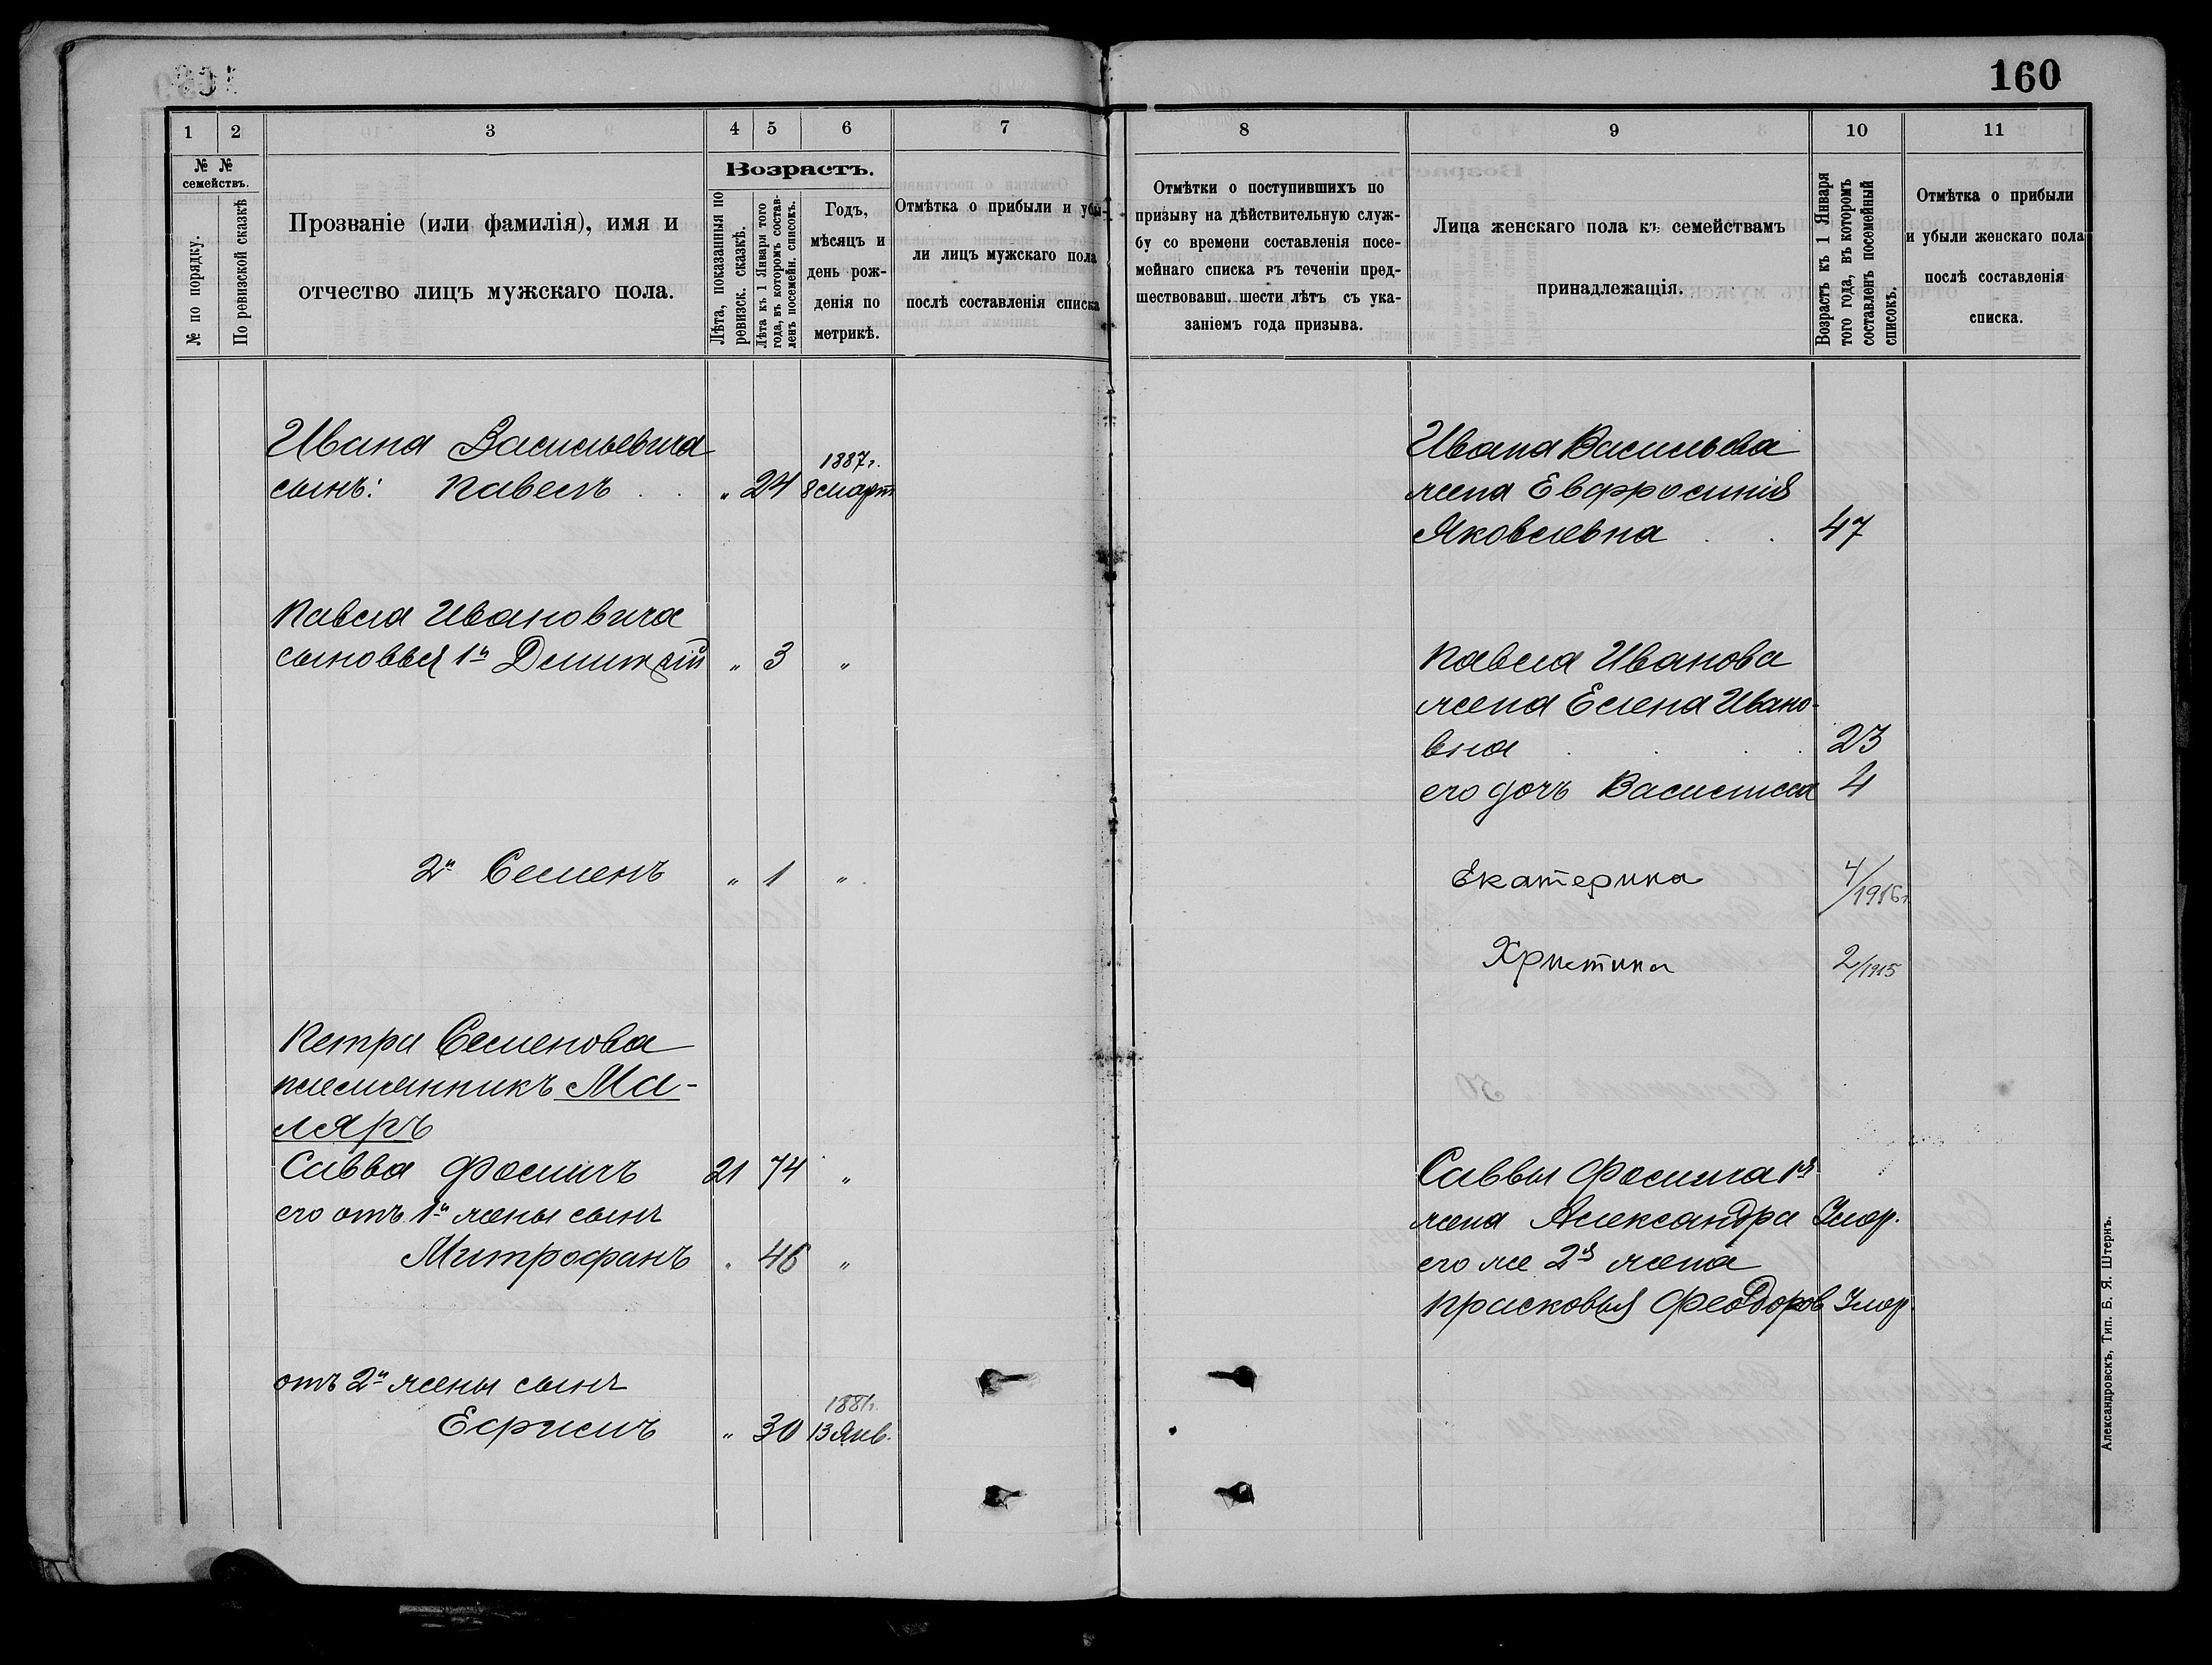 160
1 2 3 4 5 6 7
№ №
семействъ.
№ по порядку.
По ревизской сказкѣ
Прозваніе (или фамилія), имя и
отчество лицъ мужскаго пола.
Возрастъ.
Лѣта, показанныя по
ревизск. сказкѣ.
Лѣта къ 1 Января того
года, въ которомъ состав-
ленъ посемейн. списокъ.
Годъ,
мѣсяцъ и
день рож-
денія по
метрикѣ.
Отмѣтка о прибыли и убы-
ли лицъ мужскаго пола
послѣ составленія списка
Ивана Васильевича
сынъ: Павелъ . . " 24 1887г. 8 март
Павла Ивановича
сыновья 1й Дмитрій " 3 "
2й Семенъ " 1 "
Петра Семенова
племянникъ Ма-
ляръ
Савва Фомичъ 21 74 "
его отъ 1й жены сынъ
Митрофанъ " 46 "
отъ 2й жены сынъ
Ефримъ " 30 1881г. 13 Янв.
8 9 10 11
Отмѣтки о поступившихъ по
призыву на дѣйствительную служ-
бу со времени составленія посе-
мейнаго списка въ теченіи пред-
шествовавш. шести лѣтъ съ ука-
заніемъ года призыва.
Лица женскаго пола къ семействамъ
принадлежащія.
Возрастъ къ 1 Января
того года, въ которомъ
составленъ посемейный
списокъ.
Отмѣтка о прибыли
и убыли женскаго пола
послѣ составленія
списка.
Ивана Васильева
жена Евфросинія
Яковлевна . . 47
Павла Иванова
жена Елена Ивано-
вна . . . 23
его дочь Василисса 4
Екатерина
Христина 2/1915
Саввы Фомича 1я
жена Александра Умер.
его же 2я жена
Прасковья Феодоров Умер.
Александровскъ, Тип. Б. Я. Штернъ.